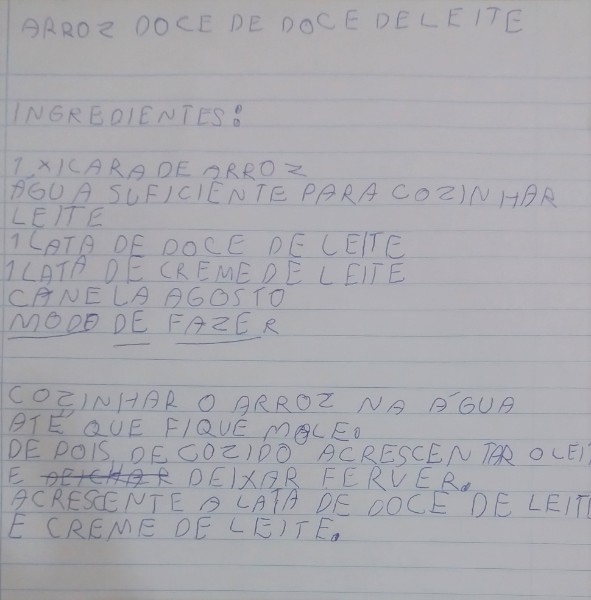 ARROZ DOCE DE DOCE DE LEITE
INGREDIENTES:
1 XICARA DE ARROZ
ÁGUA SUFICIENTE PARA COZINHAR
LEITE
1 LATA DE DOCE DE LEITE
1 LATA DE CREME DE LEITE
CANELA AGOSTO
MODO DE FAZER
COZINHAR O ARROZ NA ÁGUA
ATÉ QUE FIQUE MOLE.
DEPOIS DE COZIDO ACRESCENTAR O LEIT
E DEIXAR FERVER.
ACRESCENTE A LATA DE DOCE DE LEITE
E CREME DE LEITE.